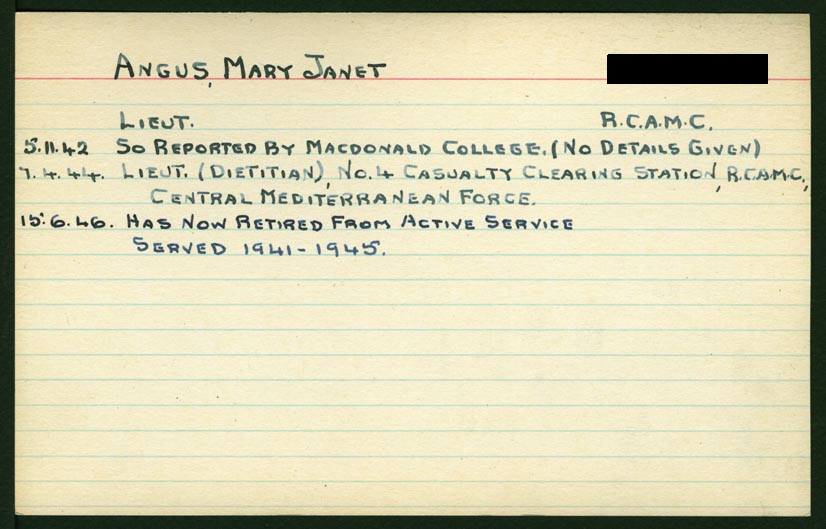 ANGUS, MARY JANET
LIEUT. R.C.A.M.C.
5.11.42 SO REPORTED BY MACDONALD COLLEGE. (NO DETAILS GIVEN)
7.4.44. LIEUT. (DIETITIAN), NO.4 CASUALTY CLEARING STATION, R.C.A.M.C.,
CENTRAL MEDITERRANEAN FORCE.
15.6.46. HAS NOW RETIRED FROM ACTIVE SERVICE
SERVED 1941-1945.